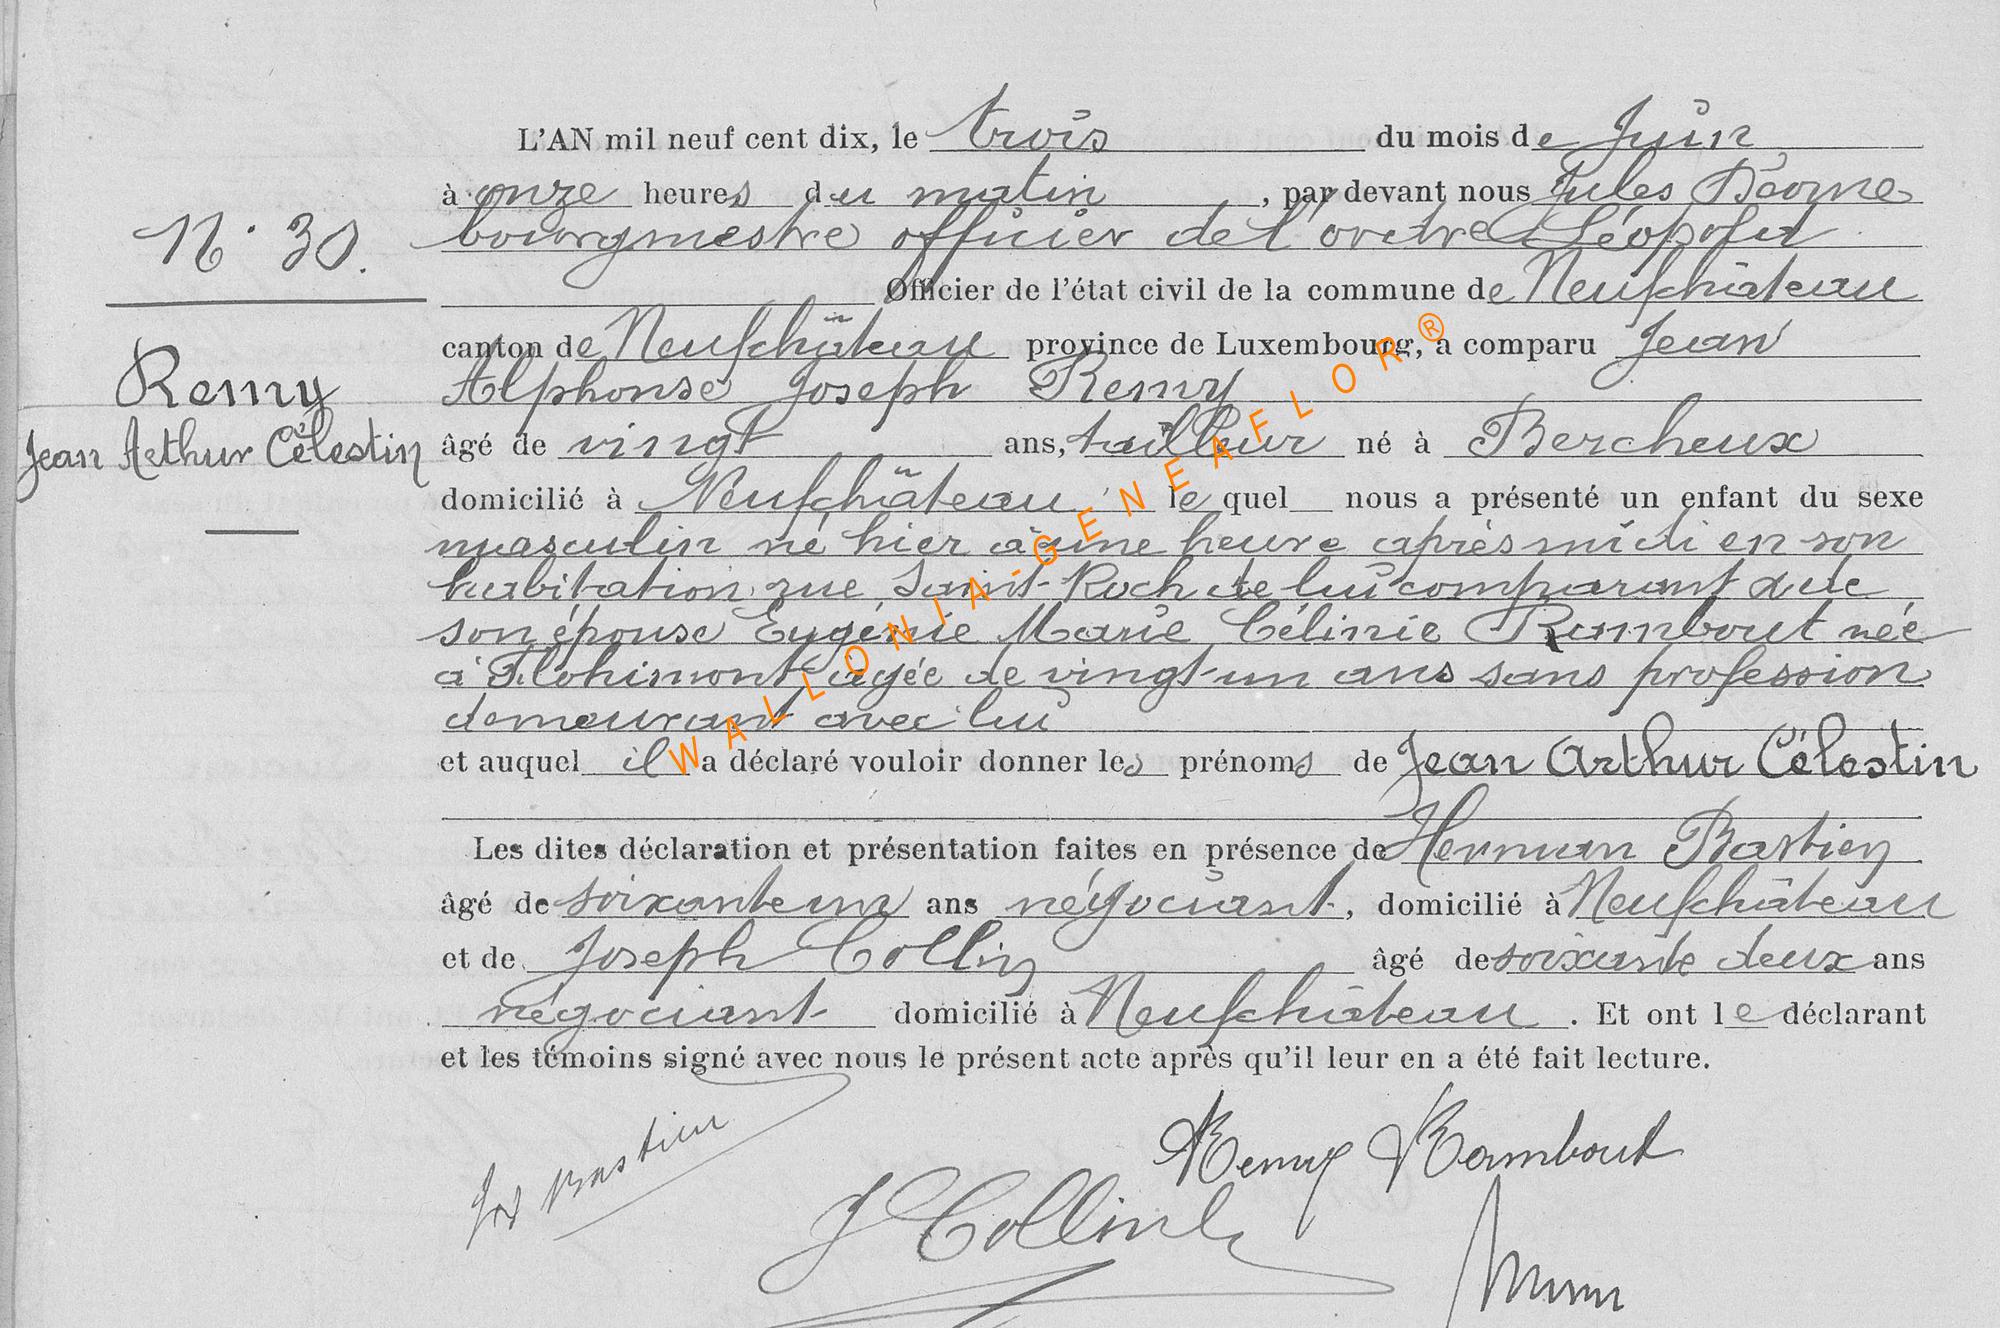 L'AN mil neuf cent dix, le trois du mois de Juin
à onze heures du matin, par devant nous Jules
N° 30. bourgmestre officier de l'ordre Léopold
Officier de l'état civil de la commune de Neufchâteau
canton de Neufchâteau province de Luxembourg, a comparu Jean
Remy Alphonse Joseph Remy
Jean Arthur Célestin âgé de vingt ans, tailleur né à Bercheux
domicilié à Neufchâteau le quel nous a présenté un enfant du sexe
masculin né hier à une heure après midi en son
habitation rue Saint-Roch de lui comparant & de
son épouse Eugénie Marie Célinie Rambout née
à Flohimont âgée de vingt-un ans sans profession
demeurant avec lui
et auquel il a déclaré vouloir donner les prénoms de Jean Arthur Célestin
Les dites déclaration et présentation faites en présence de Herman Bastien
âgé de soixante un ans négociant, domicilié à Neufchâteau
et de Joseph Collin âgé de soixante deux ans
négociant domicilié à Neufchâteau. Et ont le déclarant
et les témoins signé avec nous le présent acte après qu'il leur en a été fait lecture.
Bastien
Remy Rambout
J Collin
WALLONIA-GENEAFLOR®